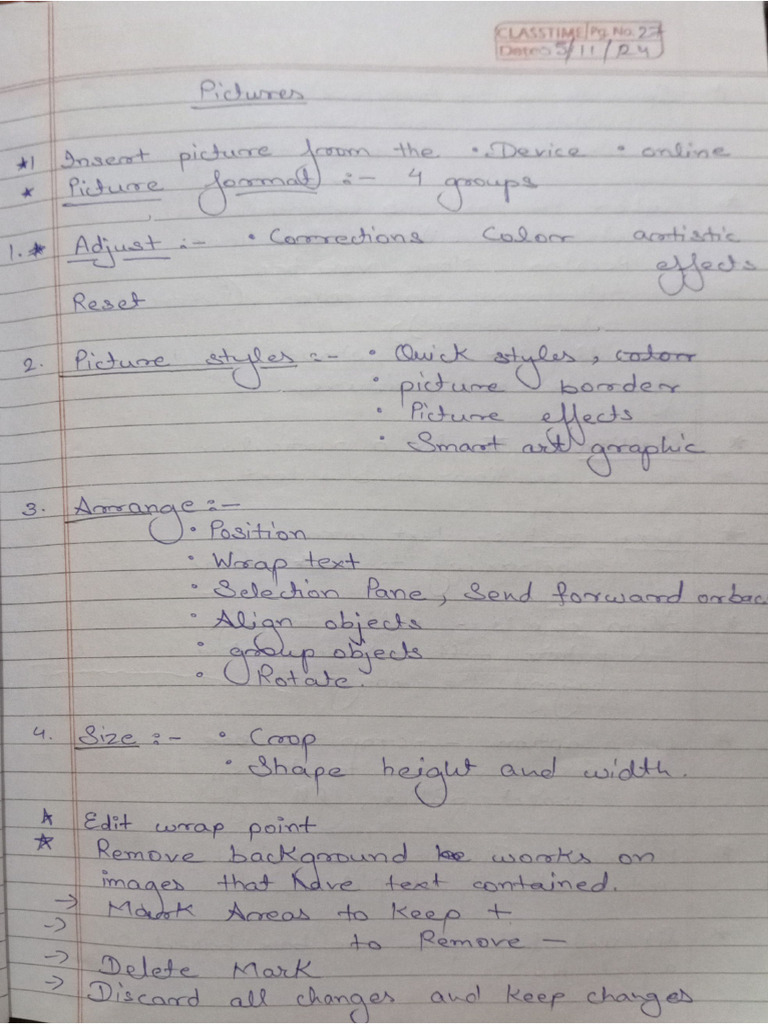 CLASSTIME Pg. No. 27
Date 5/11/24
Pictures
*1 Insert picture from the • Device • online
* Picture format :- 4 groups
1.* Adjust :- • Corrections Color artistic
effects
Reset
2. Picture styles :- • Quick styles, color
• picture border
• Picture effects
• Smart art graphic
3. Arrange :-
• Position
• Wrap text
• Selection Pane, Send forward or bac
• Align objects
• group objects
• Rotate.
4. Size :- • Crop
• Shape height and width.
* Edit wrap point
* Remove background works on
images that have text contained.
→ Mark Areas to Keep +
→ to Remove -
→ Delete Mark
→ Discard all changes and keep changes